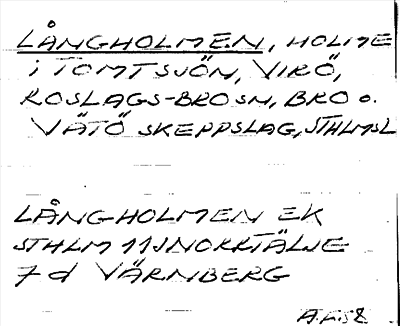 LÅNGHOLMEN, HOLME
i TOMTSJÖN, VIRÖ,
ROSLAGS-BROSN, BRO o.
VÄTÖ SKEPPSLAG, STHLMSL
LÅNGHOLMEN EK
STHLM 11J NORRTÄLJE
7d VÄRNBERG